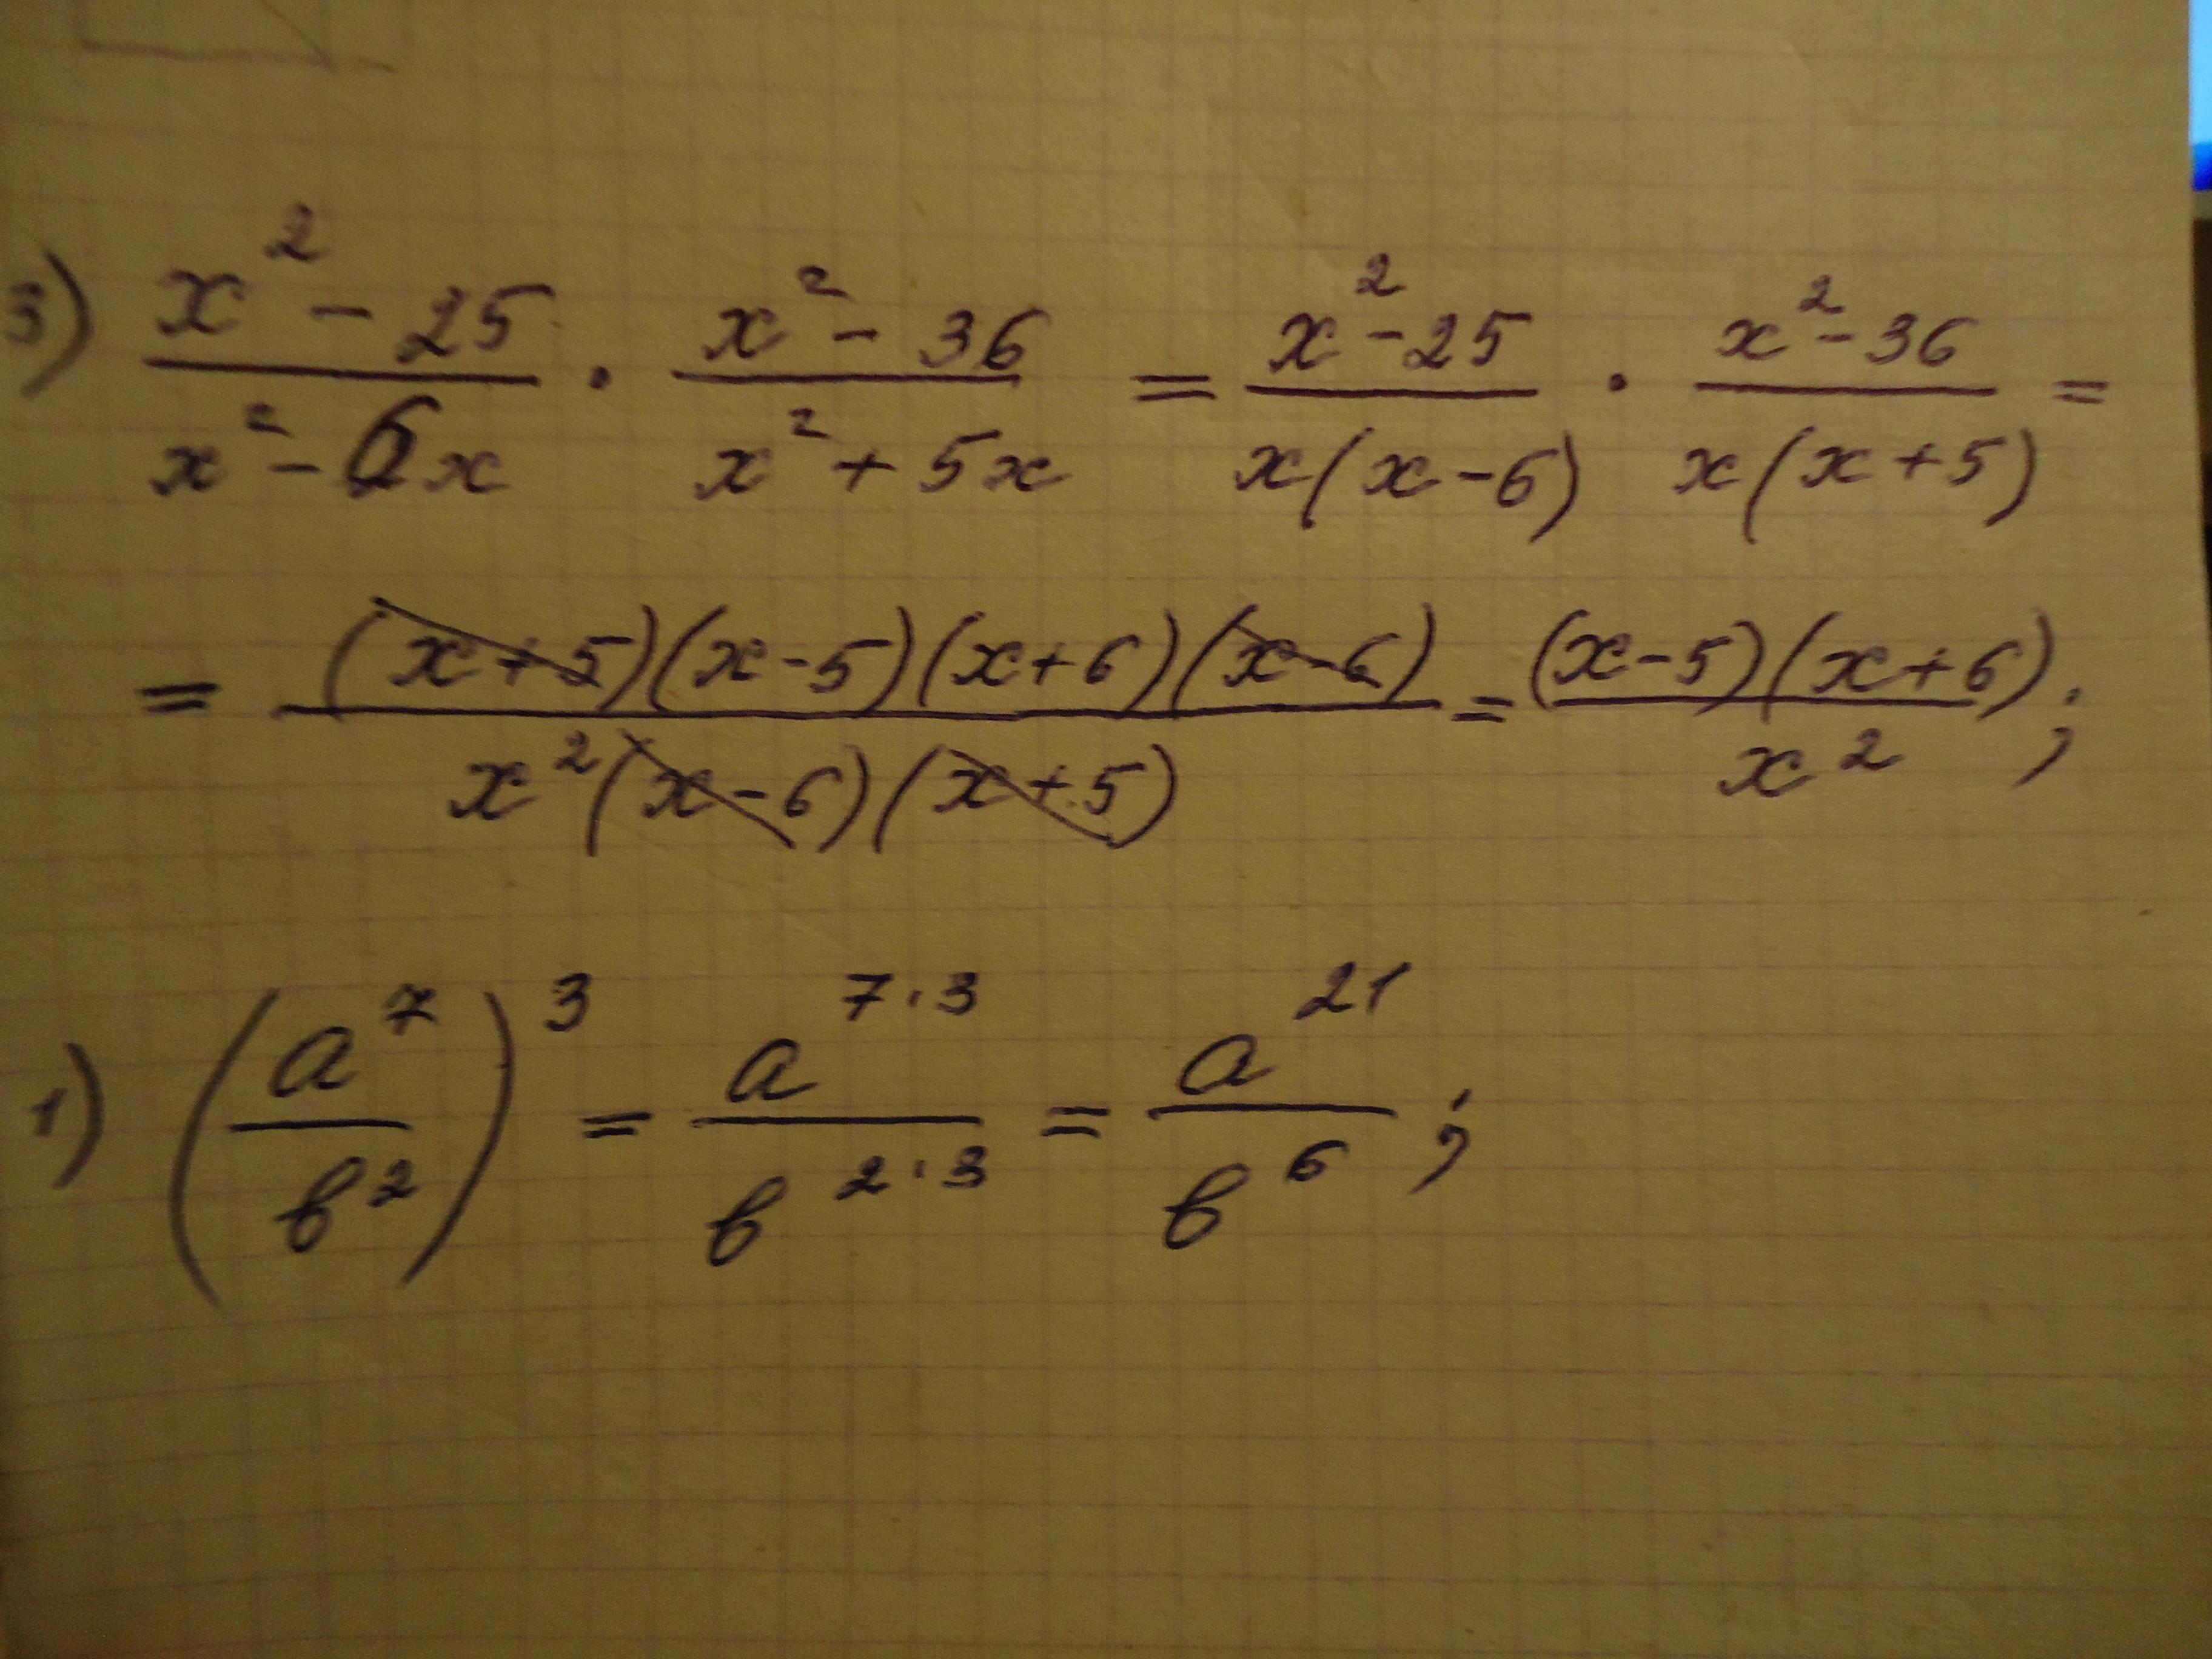 3) (x² - 25)/(x² - 6x) · (x² - 36)/(x² + 5x) = (x² - 25)/(x(x - 6)) · (x² - 36)/(x(x + 5)) =
= ((x + 5)(x - 5)(x + 6)(x - 6))/(x²(x - 6)(x + 5)) = ((x - 5)(x + 6))/x²;
1) (a⁷/в²)³ = a⁷·³/в²·³ = a²¹/в⁶;